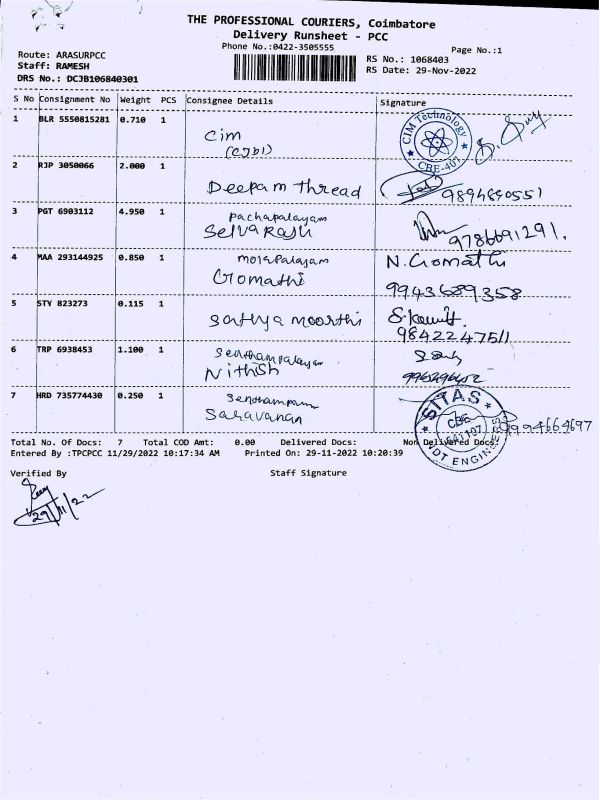 THE PROFESSIONAL COURIERS, Coimbatore
Delivery Runsheet - PCC
Phone No.:0422-3505555
Page No.:1
Route: ARASURPCC
Staff: RAMESH
DRS No.: DCJB106840301
RS No.: 1068403
RS Date: 29-Nov-2022
S No Consignment No Weight PCS Consignee Details Signature
1 BLR 5550815281 0.710 1
Cim
CIM Technology
CBE-407
2 RJP 3050066 2.000 1
Deepam thread
9894690551
3 PGT 6903112 4.950 1
pachapalayam
Selvaraju
9786691291.
4 MAA 293144925 0.850 1
molapalayam
Gomathi
N. Gomathi
9943689358
5 STY 823273 0.115 1
sathya moorthi
9842247511
6 TRP 6938453 1.100 1
Senthampalayam
Nithish
7 HRD 735774430 0.250 1
Saravanan
SITAS
CBE
641107
NDT ENGINEERS
9994664697
Total No. Of Docs: 7 Total COD Amt: 0.00 Delivered Docs: Non Delivered Docs:
Entered By :TPCPCC 11/29/2022 10:17:34 AM Printed On: 29-11-2022 10:20:39
Verified By Staff Signature
29/11/22